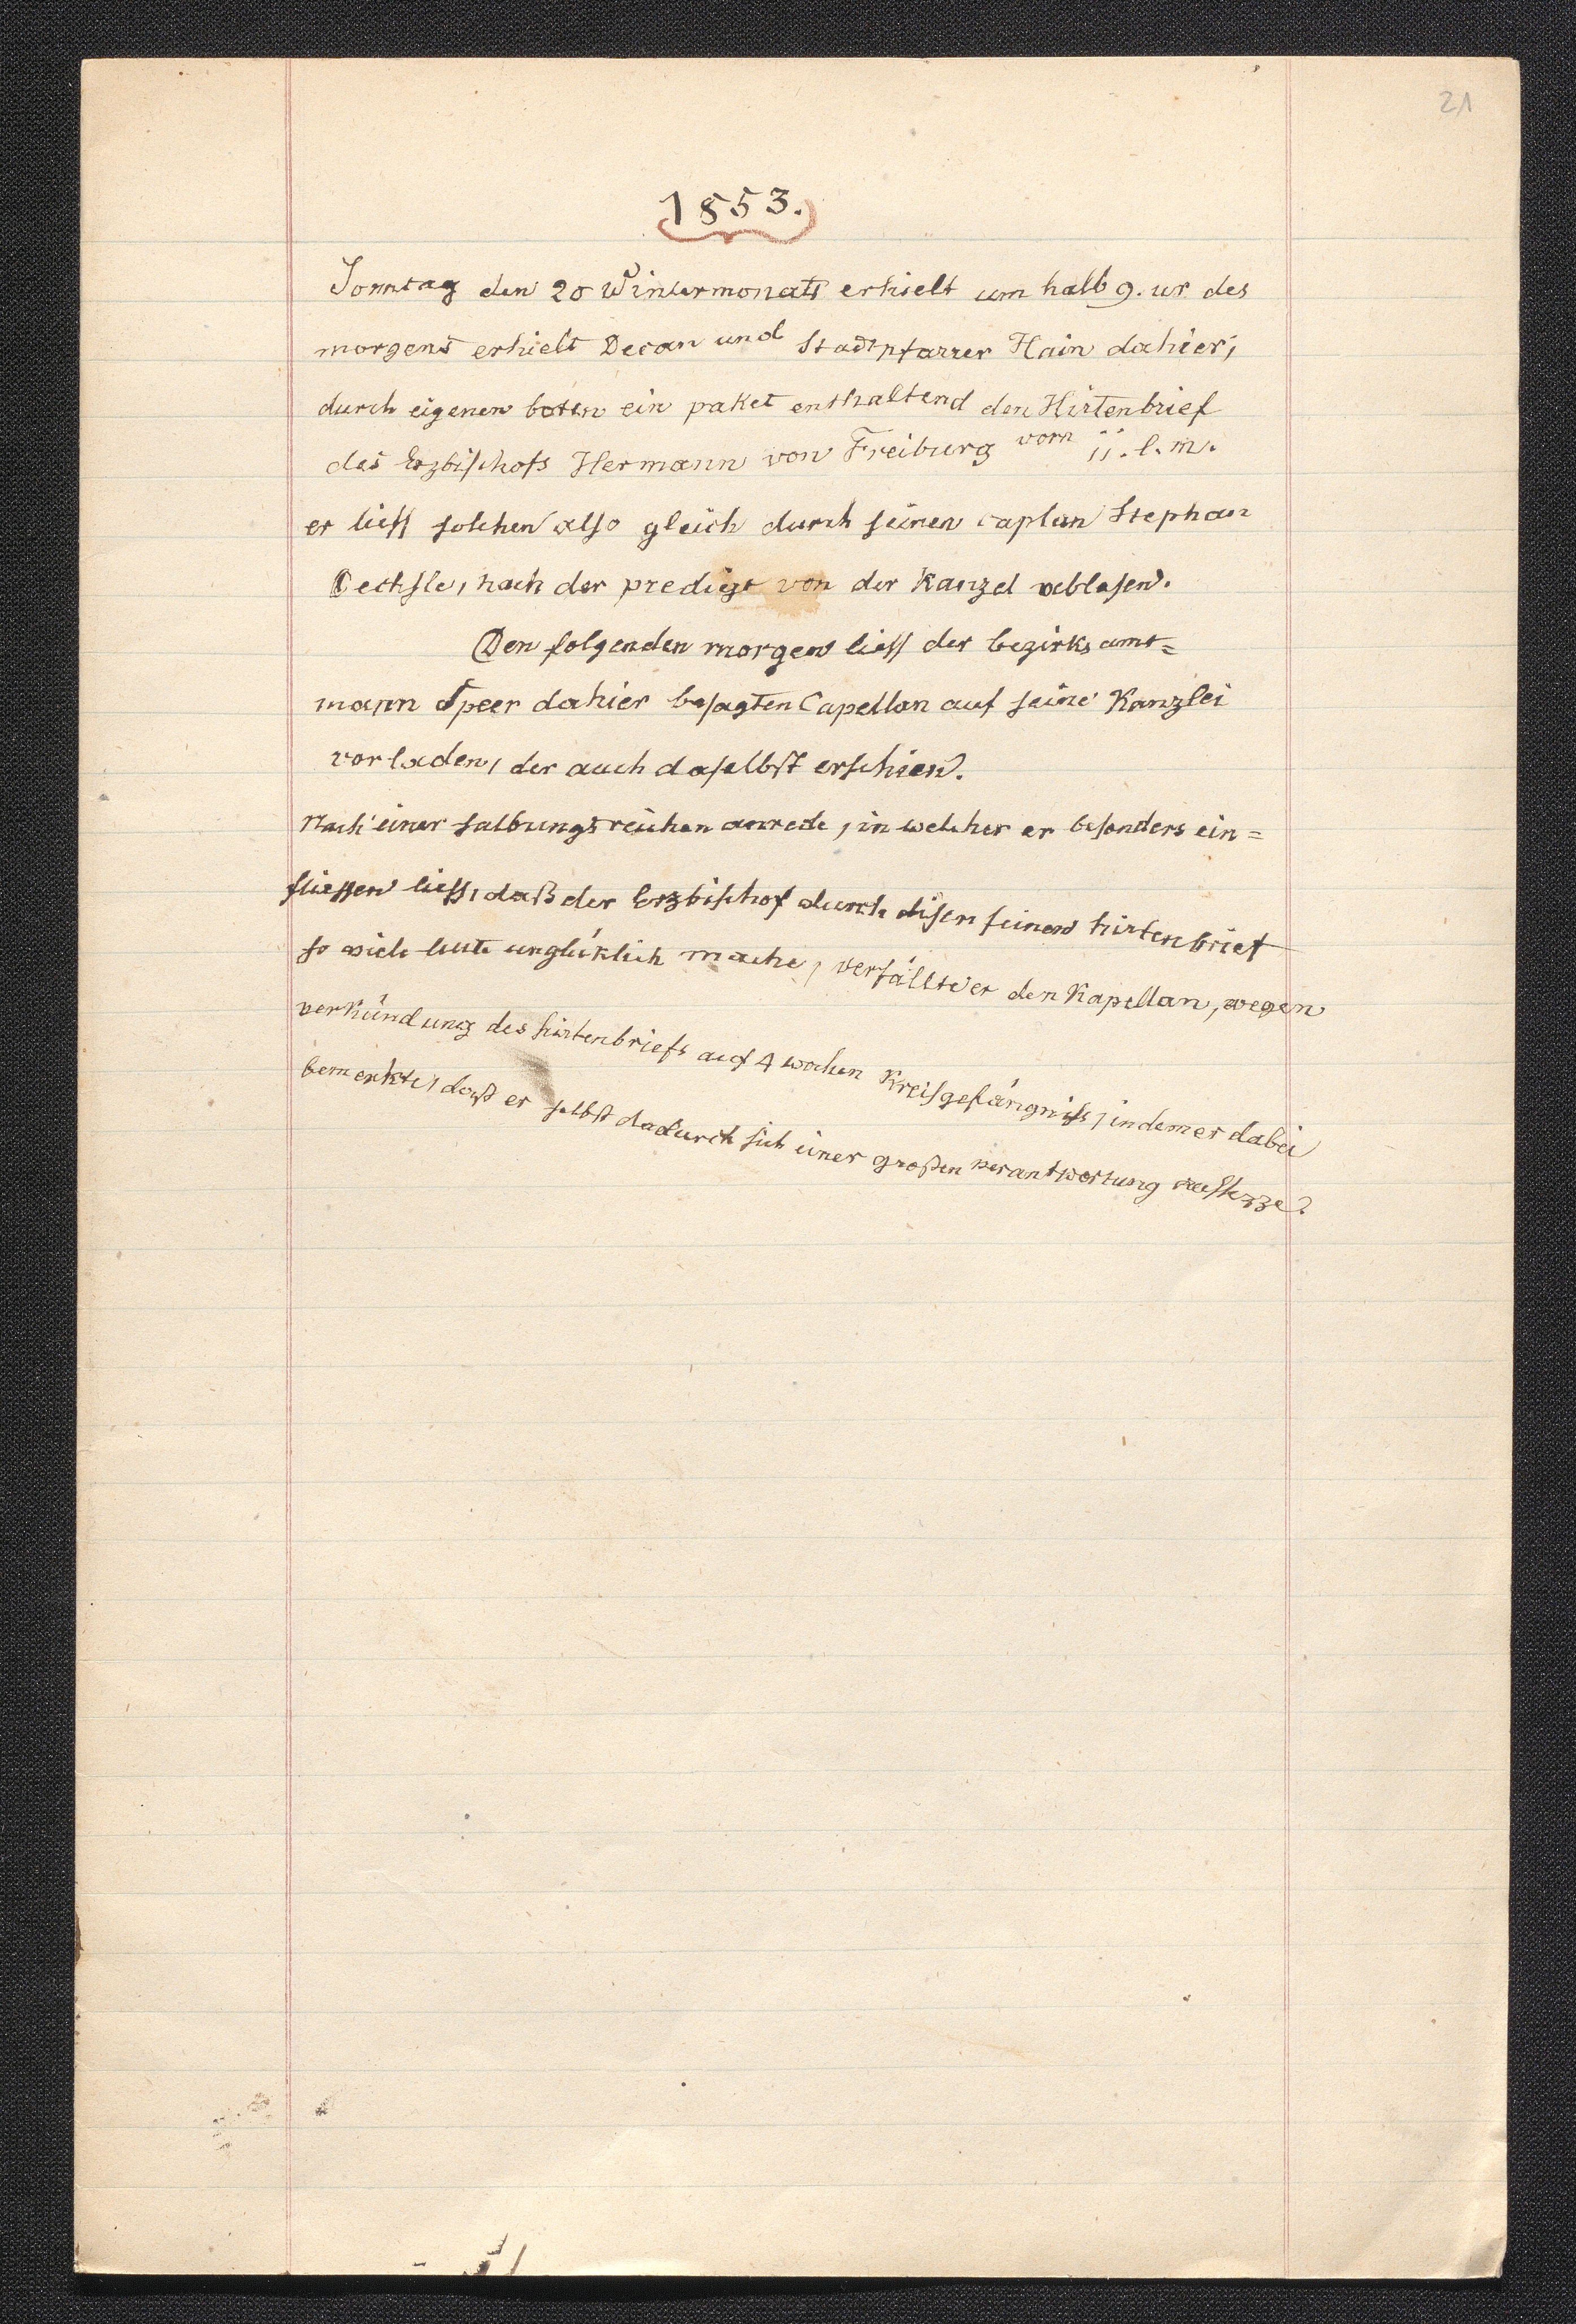 21
1853.
Sonntag den 20 Wintermonats erhielt um halb 9. ur des
morgens erhielt Decan und Stadtpfarrer Hain dahier;
durch eigenen boten ein paket enthaltend den Hirtenbrief
des Erzbischofs Hermann von Freiburg vom 11. l. m.
er liess solchen also gleich durch seinen caplan Stephan
Oechsle, nach der predigt von der Kanzel ablesen.
Den folgenden morgen liess der bezirks amt=
mann Speer dahier besagten Capellan auf seine Kanzlei
vorladen, der auch daselbst erschien.
Nach einer salbungsreichen anrede, in welcher er besonders ein=
fliessen liess, daß der Erzbischof durch disen seinen hirtenbrief
so viele leute unglüklich mache, verfällte er den Kapellan, wegen
verkündung des hirtenbriefs auf 4 wochen Kreisgefängniss, indem er dabei
bemerkte, daß er selbst dadurch sich einer großen verantwortung aussezze.